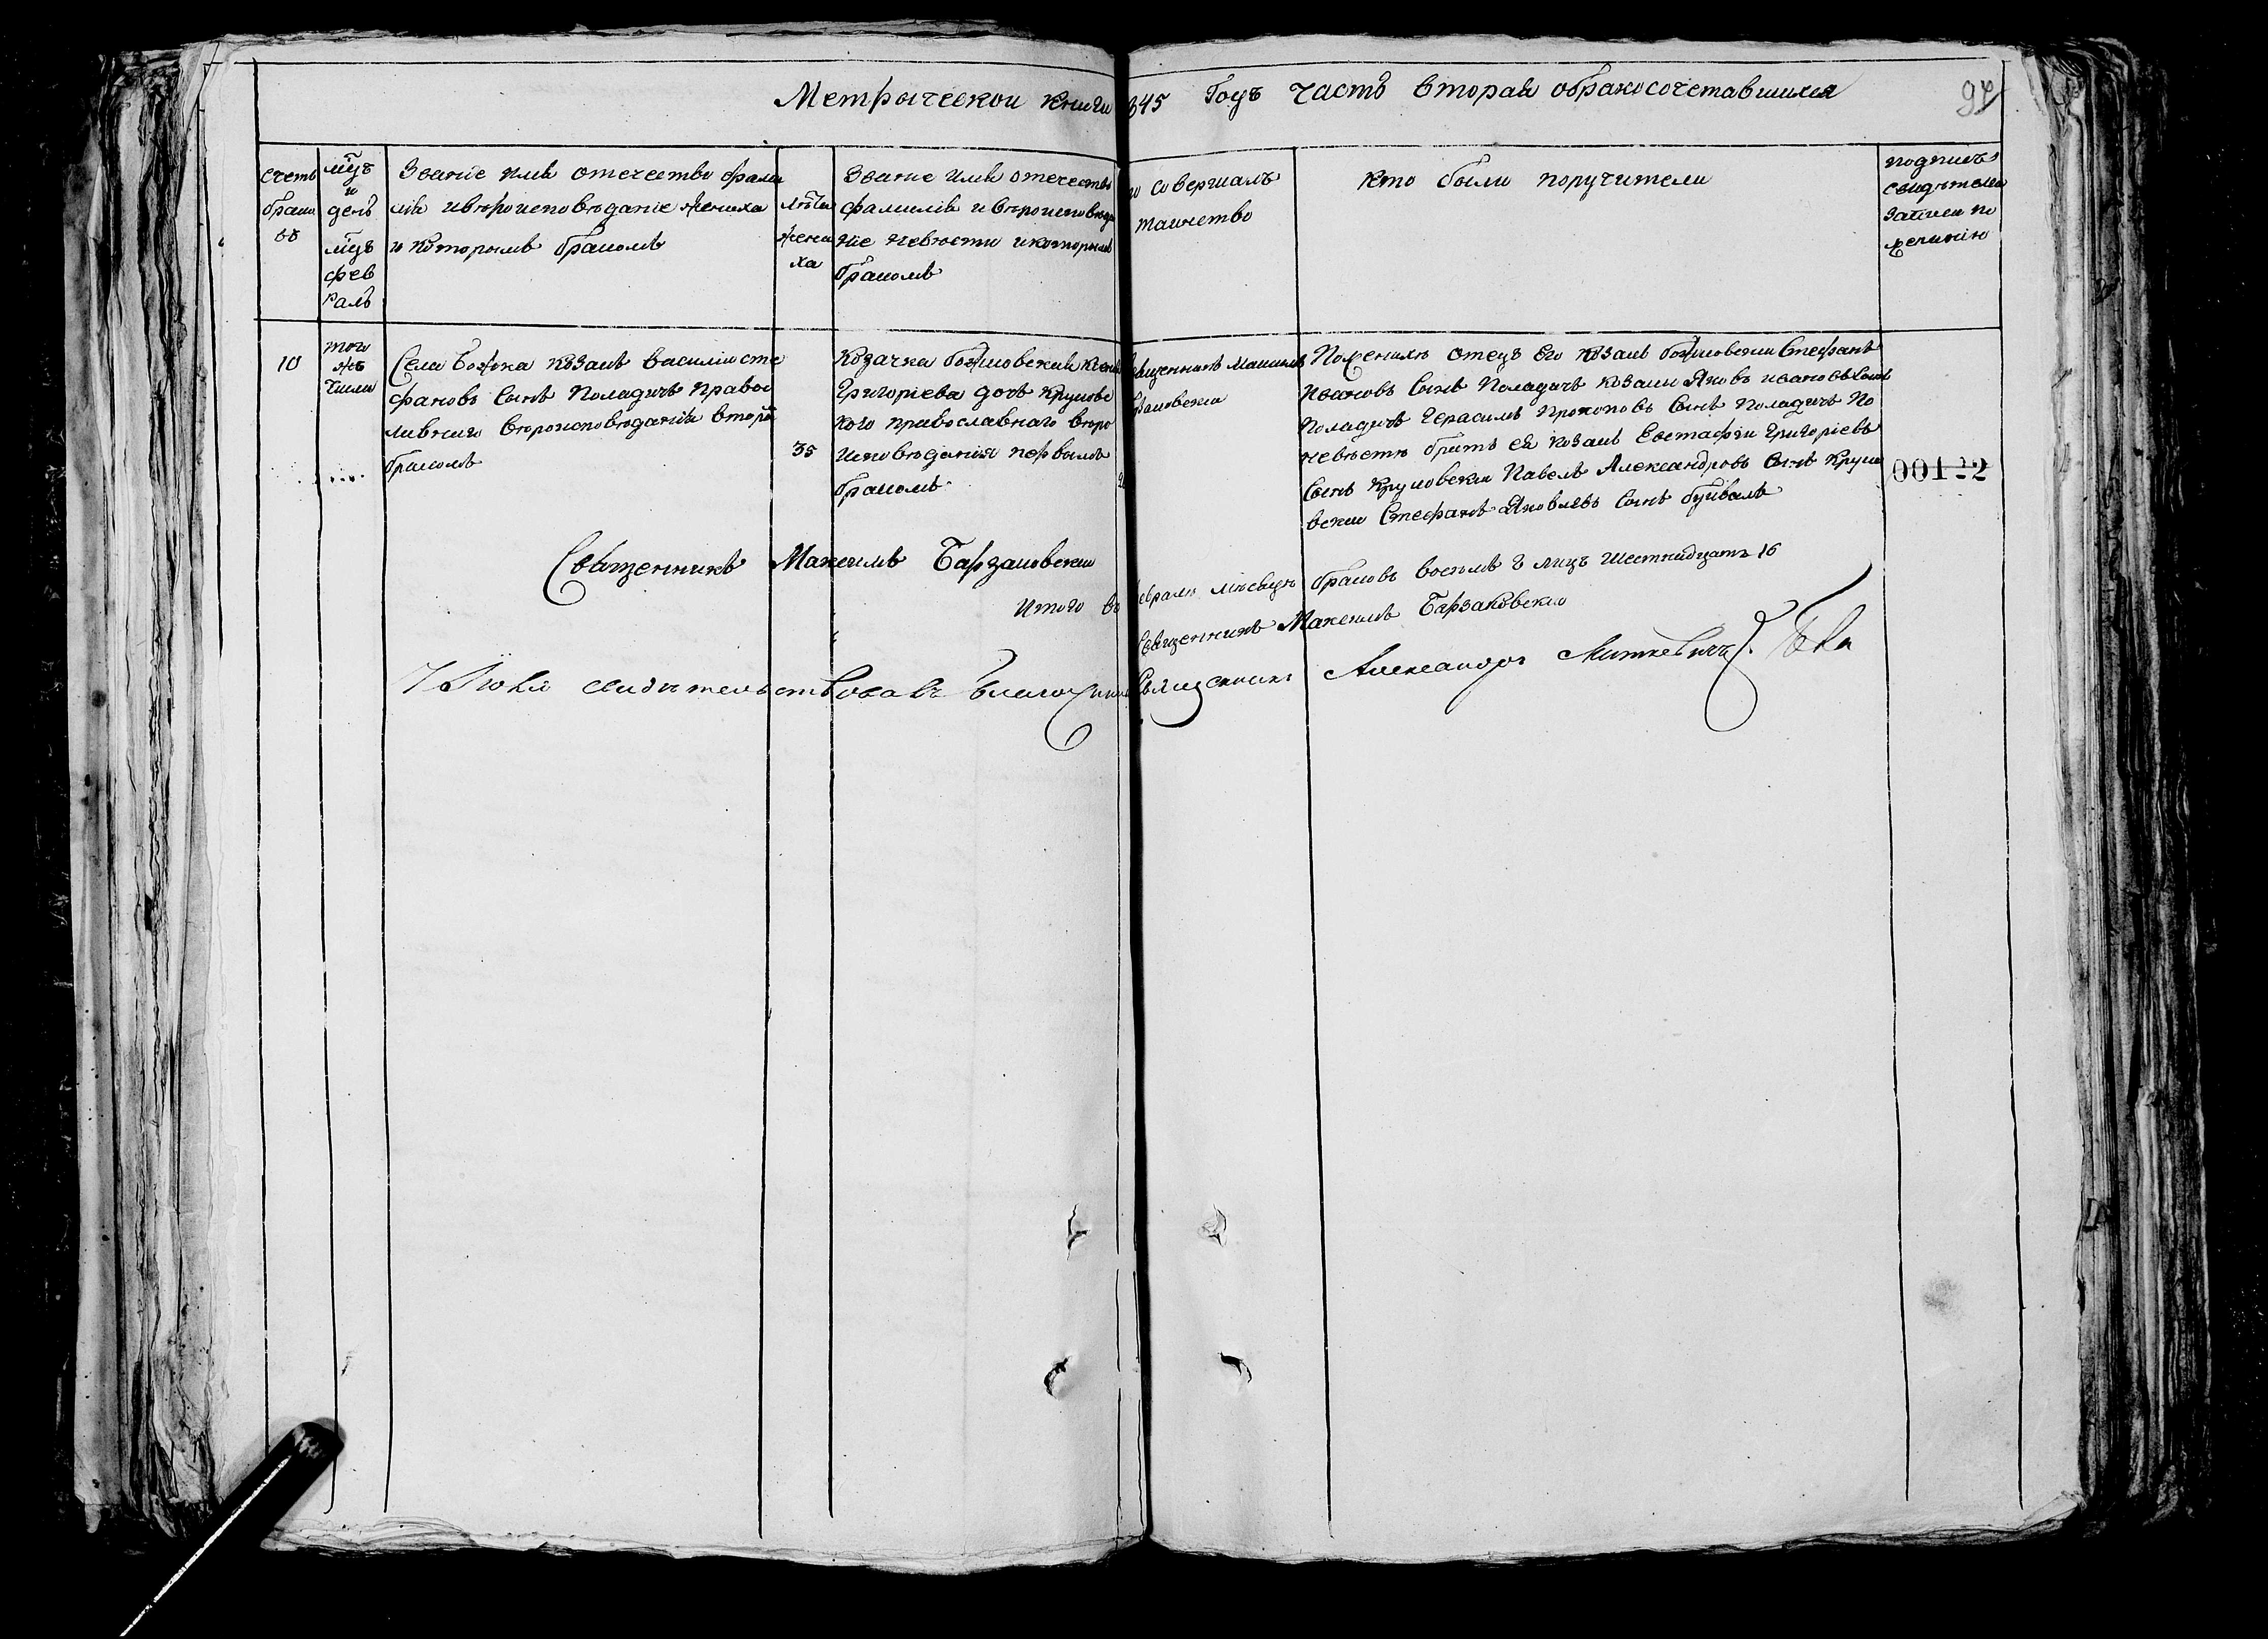 Метрической книги 845 Годъ часть вторая обракосочетавшихся
94
Счетъ
брако
въ
мцъ
и
день
мцъ
фев
раль
Званіе имя отечество фами
лія ивѣроисповѣданіе жениха
и которымъ бракомъ
лѣта
жени
ха
Званіе имя отечество
фамилія и вѣроисповѣда
ніе невѣсты икоторымъ
бракомъ
о совершалъ
таинство
кто были поручители
подпись
свидѣтелей
записи по
желанію
10
того
же
числа
Села Божка козакъ василій сте
фановъ сынъ Поладичъ право
лавнаго вѣроисповѣданія вторы
бракомъ
35
Козачка божковская
Григоріева дочь Крупов
кого православнаго вѣро
исповѣданія первымъ
бракомъ
вященникъ Максимъ
заковскій
Поженихѣ отецъ его козакъ божковскій Стефанъ
Ивановъ сынъ Поладичъ козаки Яковъ ивановъ сынъ
Поладичъ Герасимъ Прокоповъ сынъ Поладичъ По
невѣстѣ братъ ея козакъ Евстафій Григоріевъ
сынъ Круповскій Павелъ Александровъ сынъ Крупо
вскій Стефанъ Яковлевъ сынъ буйвалъ
00122
Священникъ Максимъ Барзаковскій
Итого въ евралѣ мѣсяцѣ браковъ восемъ 8 лицъ шестнадцать 16
Священникъ Максимъ Барзаковскій
свидѣтельствовалъ Благочинный Священникъ Александръ Миткевичъ